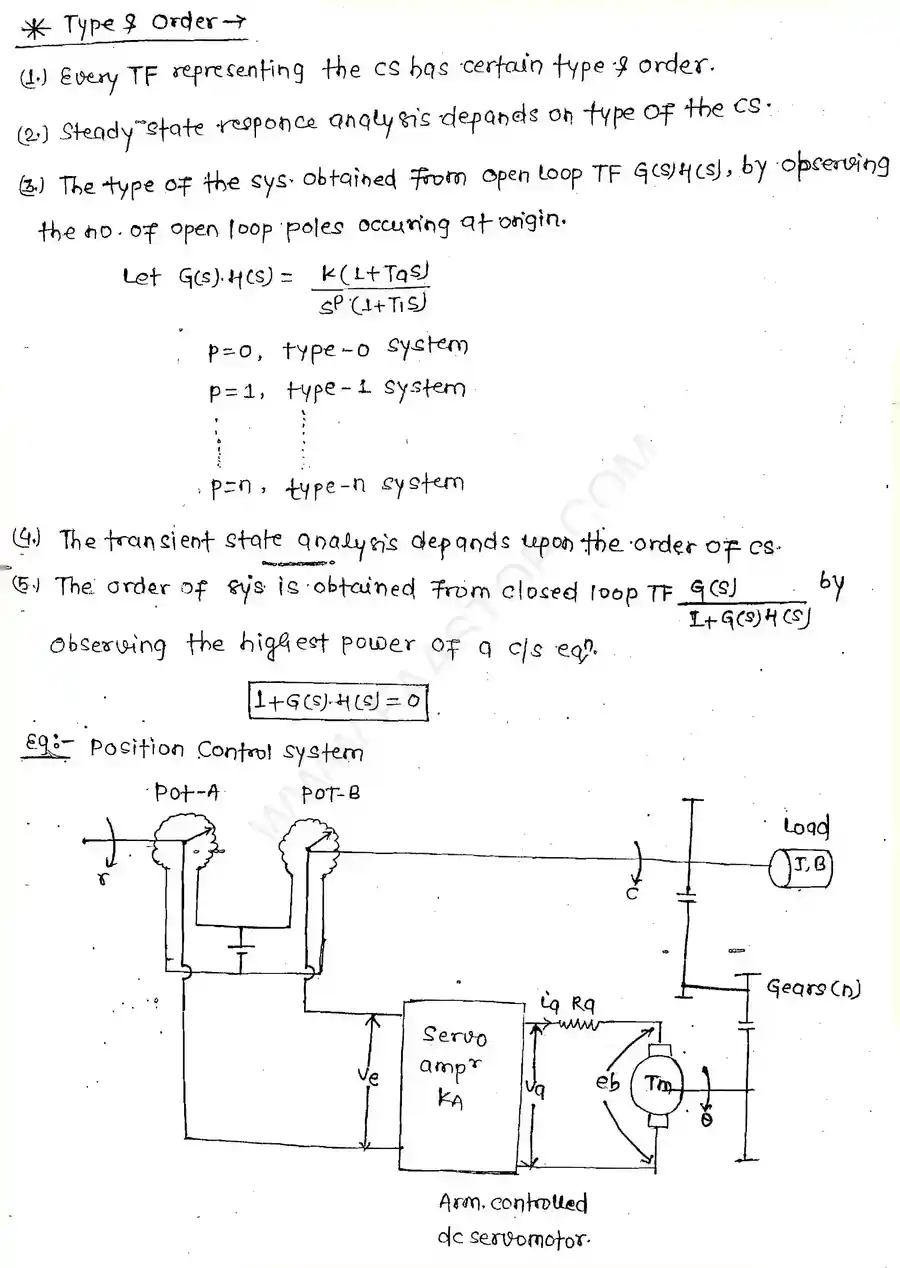 * Type & Order →
(1.) Every TF representing the CS has certain type & order.
(2.) Steady state responce analysis depands on type of the CS.
(3.) The type of the sys. obtained from open loop TF G(S)H(S), by observing
the no. of open loop poles occuring at origin.
Let G(S).H(S) = K(1+TaS) / S^P.(1+T1S)
P=0, type-0 system
P=1, type-1 system
P=n, type-n system
(4.) The transient state analysis depands upon the order of CS.
(5.) The order of sys is obtained from closed loop TF G(S) / 1+G(S)H(S) by
observing the highest power of a c/s eqn.
1+G(S).H(S) = 0
Eg:- Position Control system
POT-A POT-B
Load
r
C
J,B
Gears(n)
ia Ra
Servo
ampr
KA
Ve
Va
eb
Tm
θ
Arm. controlled
dc servomotor.